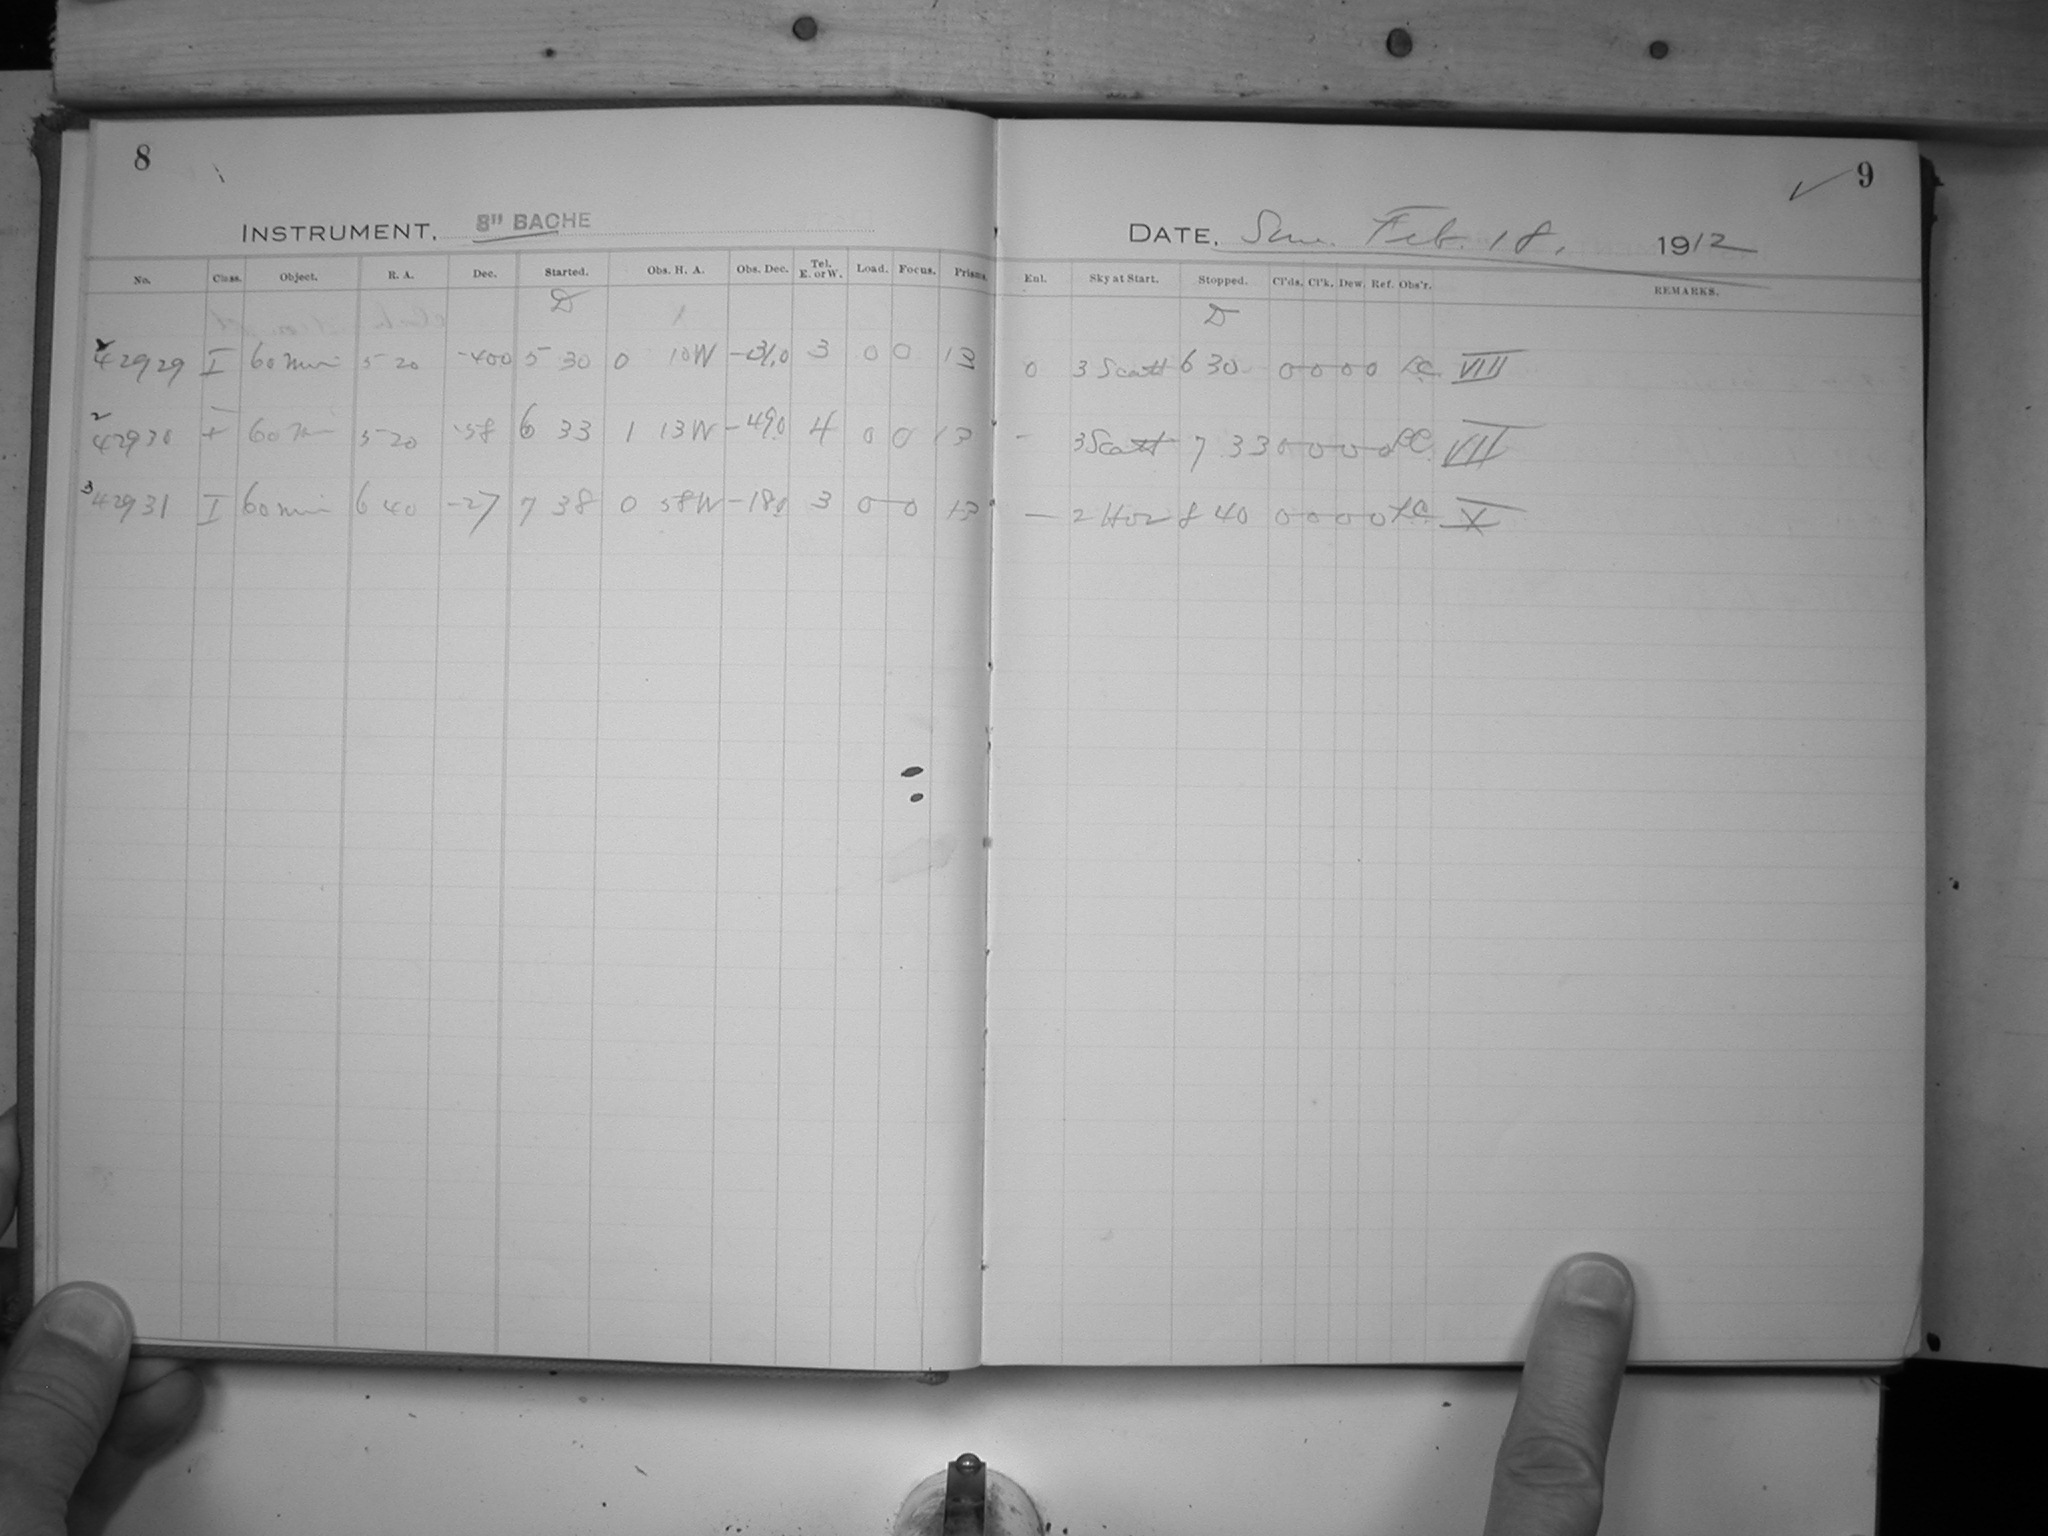 8
INSTRUMENT. 8" BACHE
No. Class. Object. R. A. Dec. Started. Obs. H. A. Obs. Dec. Tel. E. or W. Load. Focus. Prisms.
D
42929 I 60 min 5 20 -400 5 30 0 10W -31.0 3 0 0 13
2
42930 I 60 min 5 20 -58 6 33 1 13W -49.0 4 0 0 13
3
42931 I 60 min 6 40 -27 7 38 0 58W -18.0 3 0 0 13
9
DATE. Sun. Feb. 18, 1912
Enl. Sky at Start. Stopped. Cl'ds. Cl'k. Dew. Ref. Obs'r. REMARKS.
D
0 3 Scatt 6 30 0 0 0 0 LC. VIII
- 3 Scatt 7 33 0 0 0 0 LC. VII
- 2 Hor 8 40 0 0 0 0 LC. X